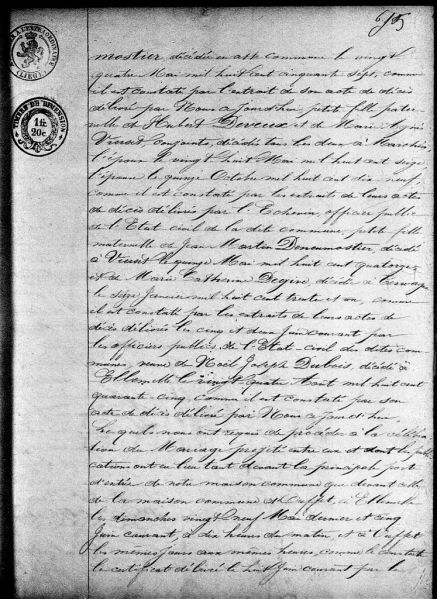 695
LIÉGE
TIMBRE DE DIMENSION
1 fr
20c
mostier, décédée en cette commune le vingt
quatre Mai mil huit cent cinquante sept, comme
il est constaté par l'extrait de son acte de décès
délivré par Nous aujourd'hui petite fille pater
nelle de Hubert Deveux et de Marie Agnès
conjoints, décédés tous les deux à
l'époux le vingt huit Mai mil huit cent seize
l'épouse le quinze Octobre mil huit cent dix neuf,
comme il est constaté par les extraits de leurs actes
de décès délivrés par l'Echevin, officier public
de l'Etat civil de la dite commune, petite fille
maternelle de Jean Martin Doneumostier, décédé
à le quinze Mai mil huit cent quatorze
et de Marie Catherine décédée à
le seize Janvier mil huit cent trente et un, comme
il est constaté par les extraits de leurs actes de
décès délivrés les cinq et deux Juin courant par
les officiers publics de l'Etat-civil des dites com
munes, veuve de Noël Joseph Dubois, décédé à
Ellemelle le vingt quatre Août mil huit cent
quarante cinq, comme il est constaté par son
acte de décès délivré par Nous aujourd'hui
Lesquels nous ont requis de procéder à la célébra
tion du Mariage projeté entre eux et dont les publi
cations ont eu lieu tant devant la principale porte
d'entrée de notre maison commune que devant celle
de la maison commune d'Ouffet, à Ellemelle
les dimanches vingt neuf Mai dernier et cinq
Juin courant, à dix heures du matin, et à Ouffet
les mêmes jours aux mêmes heures, comme le constate
le certificat délivré le huit Juin courant par le